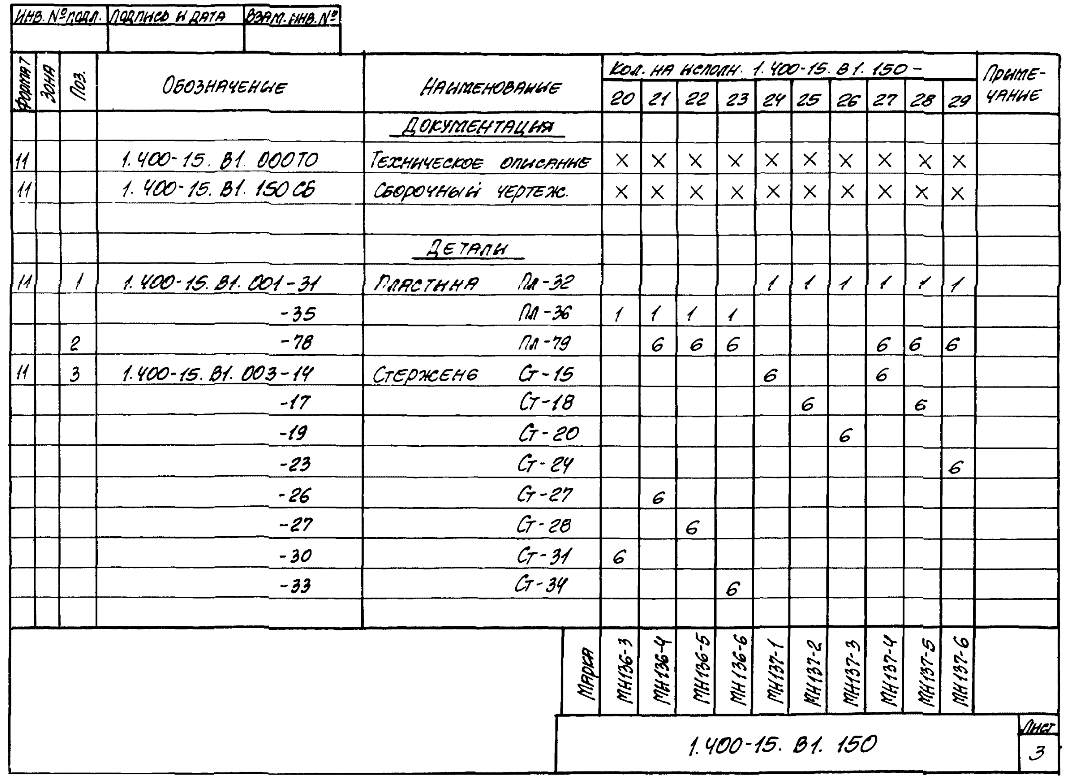 Инв. № подл. Подпись и дата Взам. инв. №
Формат Зона Поз. Обозначение Наименование Кол. на исполн. 1.400-15. В1. 150 - Примечание
20 21 22 23 24 25 26 27 28 29
Документация
11 1.400-15. В1. 000ТО Техническое описание × × × × × × × × × ×
11 1.400-15. В1. 150 СБ Сборочный чертеж. × × × × × × × × × ×
Детали
11 1 1.400-15. В1. 001-31 Пластина Пл-32 1 1 1 1 1 1
-35 Пл-36 1 1 1 1
2 -78 Пл-79 6 6 6 6 6 6
11 3 1.400-15. В1. 003-14 Стержень Ст-15 6 6
-17 Ст-18 6 6
-19 Ст-20 6
-23 Ст-24 6
-26 Ст-27 6
-27 Ст-28 6
-30 Ст-31 6
-33 Ст-34 6
Марка МН136-3 МН136-4 МН136-5 МН136-6 МН137-1 МН137-2 МН137-3 МН137-4 МН137-5 МН137-6
1.400-15. В1. 150
Лист
3